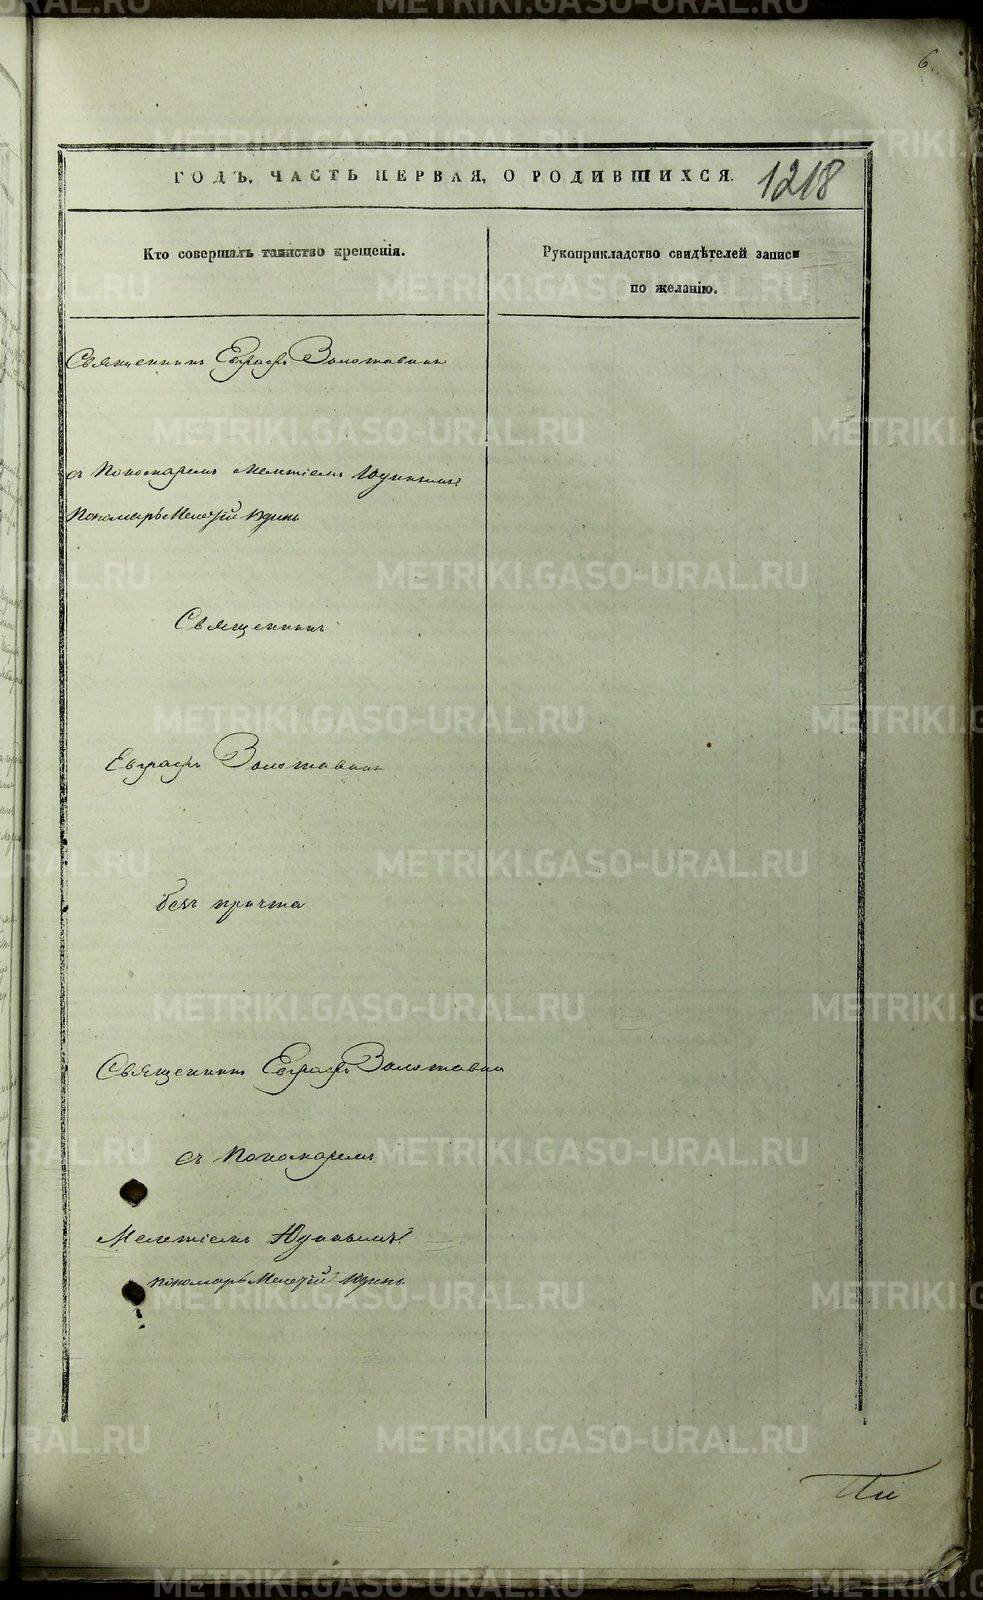 6.
ГОДЪ, ЧАСТЬ ПЕРВАЯ, О РОДИВШИХСЯ. 1218
Кто совершалъ таинство крещенія.
Рукоприкладство свидѣтелей записи
по желанію.
Священникъ Евграфъ Золотавинъ
съ Пономаремъ Мелетіемъ Юдинымъ.
Пономарь Мелетій Юдинъ
Священникъ
Евграфъ Золотавинъ
безъ причта
Священникъ Евграфъ Золотавин
съ Пономаремъ
Мелетіемъ Юдинымъ.
пономарь Мелетій Юдинъ
METRIKI.GASO-URAL.RU